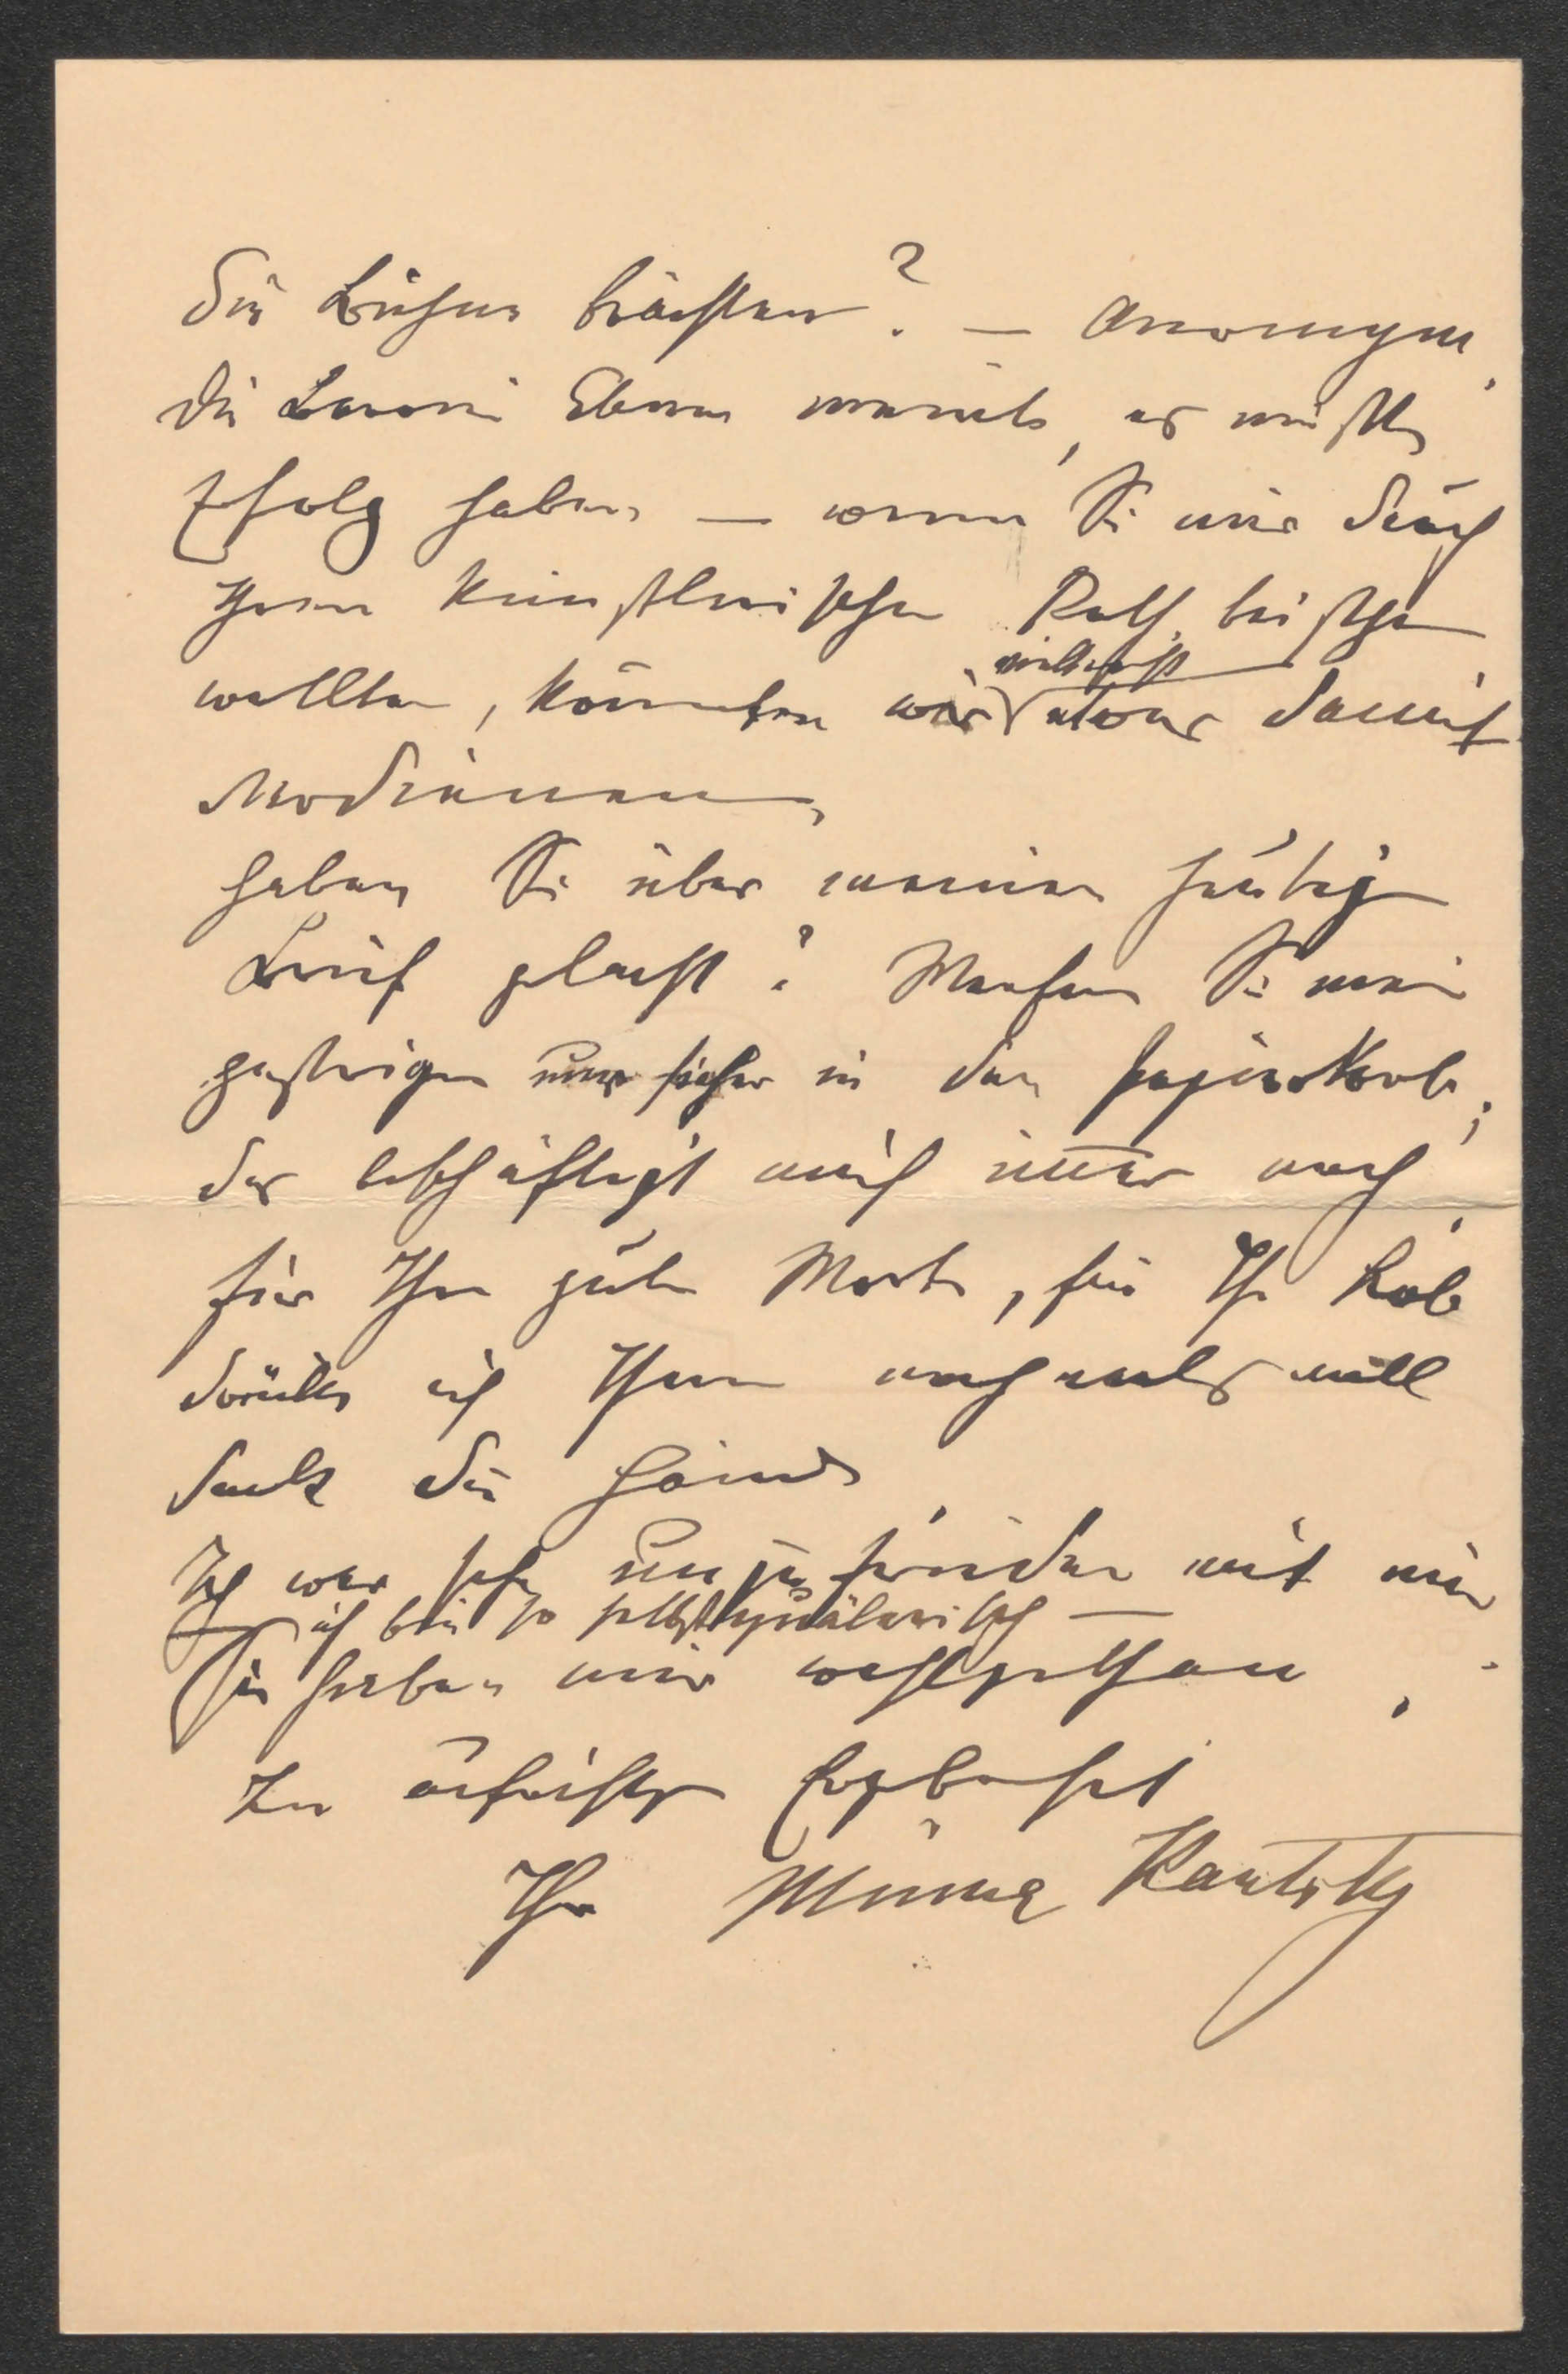 die Bühne brächten? — Anonym.
Die Baronin Ebner meinte, es müßte
Erfolg haben — wenn Sie mir durch
Ihren künstlerischen Rath beistehen
wollten, könnten wir vielleicht etwas damit
verdienen.
Haben Sie über meinen heutigen
Brief gelacht? Werfen Sie meinen
gestrigen nur sicher in den Papierkorb,
der beschäftigt mich immer noch;
für Ihre guten Worte, für Ihr Lob
drücke ich Ihnen nochmals voll
Dank die Hände.
Ich war sehr unzufrieden mit mir
ich bin so selbstquälerisch —
Sie haben mir wohlgethan.
In aufrichtiger Ergebenheit
Ihre Minna Kautsky